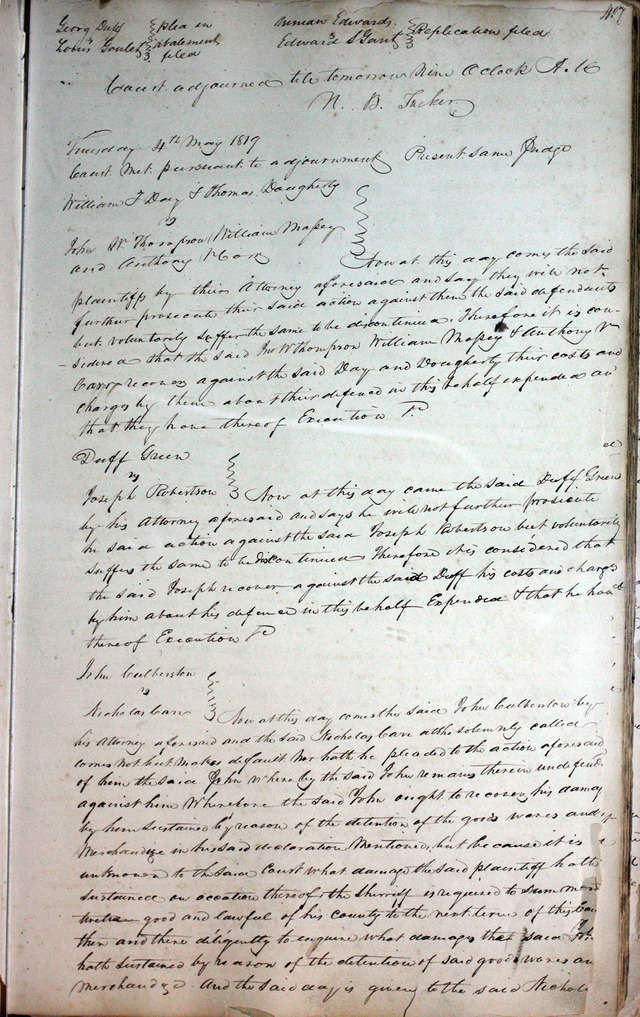 407
Georg Duff } plea in Ninian Edwards
vs abatement Edward S Gantt } Replication filed
filed
Court adjourned till tomorrow Nine OClock A.M
N. B. Tucker
Tuesday 4th May 1819
Court Met pursuant to adjournment Present same Judge
William T Day & Thomas Daugherty
vs
John W Thompson William Massey
and Anthony V Carr Now at this day comes the said
plaintiffs by their Attorney aforesaid and say they will not
further prosecute their said action against them the said defendants
but voluntarily suffer the same to be discontinued. Therefore it is con-
-sidered that the said Jno W Thompson William Massey & Anthony V
Carr recover against the said Day and Dougherty their costs and
charges by them about their defence in this behalf expended and
that they have thereof Execution &c
Duff Green
vs
Joseph Robertson } Now at this day came the said Duff Green
by his Attorney aforesaid and says he will not further prosecute
he said action against the said Joseph Robertson but voluntarily
suffers the same to be discontinued Therefore it is considered that
the said Joseph recover against the said Duff his costs and charges
by him about his defence in this behalf Expended & that he have
thereof Execution &c
John Culbertson
vs
Nicholas Carr } Now at this day comes the said John Culbertson by
his Attorney aforesaid and the said Nicholas Carr altho solemnly called
comes not but makes default nor hath he pleaded to the action aforesaid
of him the said John Whereby the said John remains therein undefended
against him Wherefore the said John ought to recover his damag
by him Sustained by reason of the detention of the goods wares and
Merchandize in his said declaration Mentioned, but because it is
unknown to the said Court what damage the said plaintiff hath
Sustained on occation thereof the Sherriff is required to summon
twelve good and lawful of his county to the next term of this Cou
then and there diligently to enquire what damages the said Jn
hath Sustained by reason of the detention of said goods wares an
Merchandize And the said day is given to the said Nichola